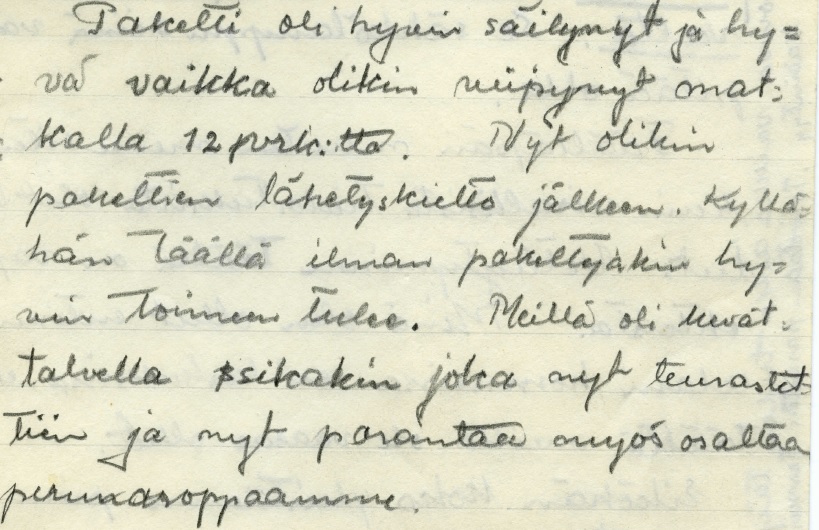 Paketti oli hyvin säilynyt ja hy=
vä vaikka olikin viipynyt mat=
kalla 12 vrk:tta. Nyt olikin
pakettien lähetyskielto jälkeen. Kyllä=
hän täällä ilman pakettejakin hy=
vin toimeen tulee. Meillä oli kevät=
talvella sikakin joka nyt teurastet=
tiin ja nyt parantaa myös osaltaa
perunasoppaamme.